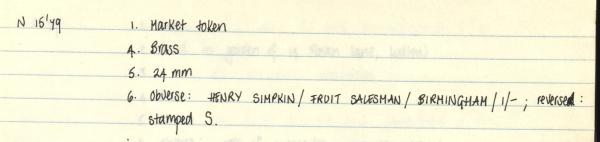 N 15'49 1. Market token
4. Brass
5. 24 mm
6. obverse: HENRY SIMPKIN / FRUIT SALESMAN / BIRMINGHAM / 1/- ; reversed:
stamped S.